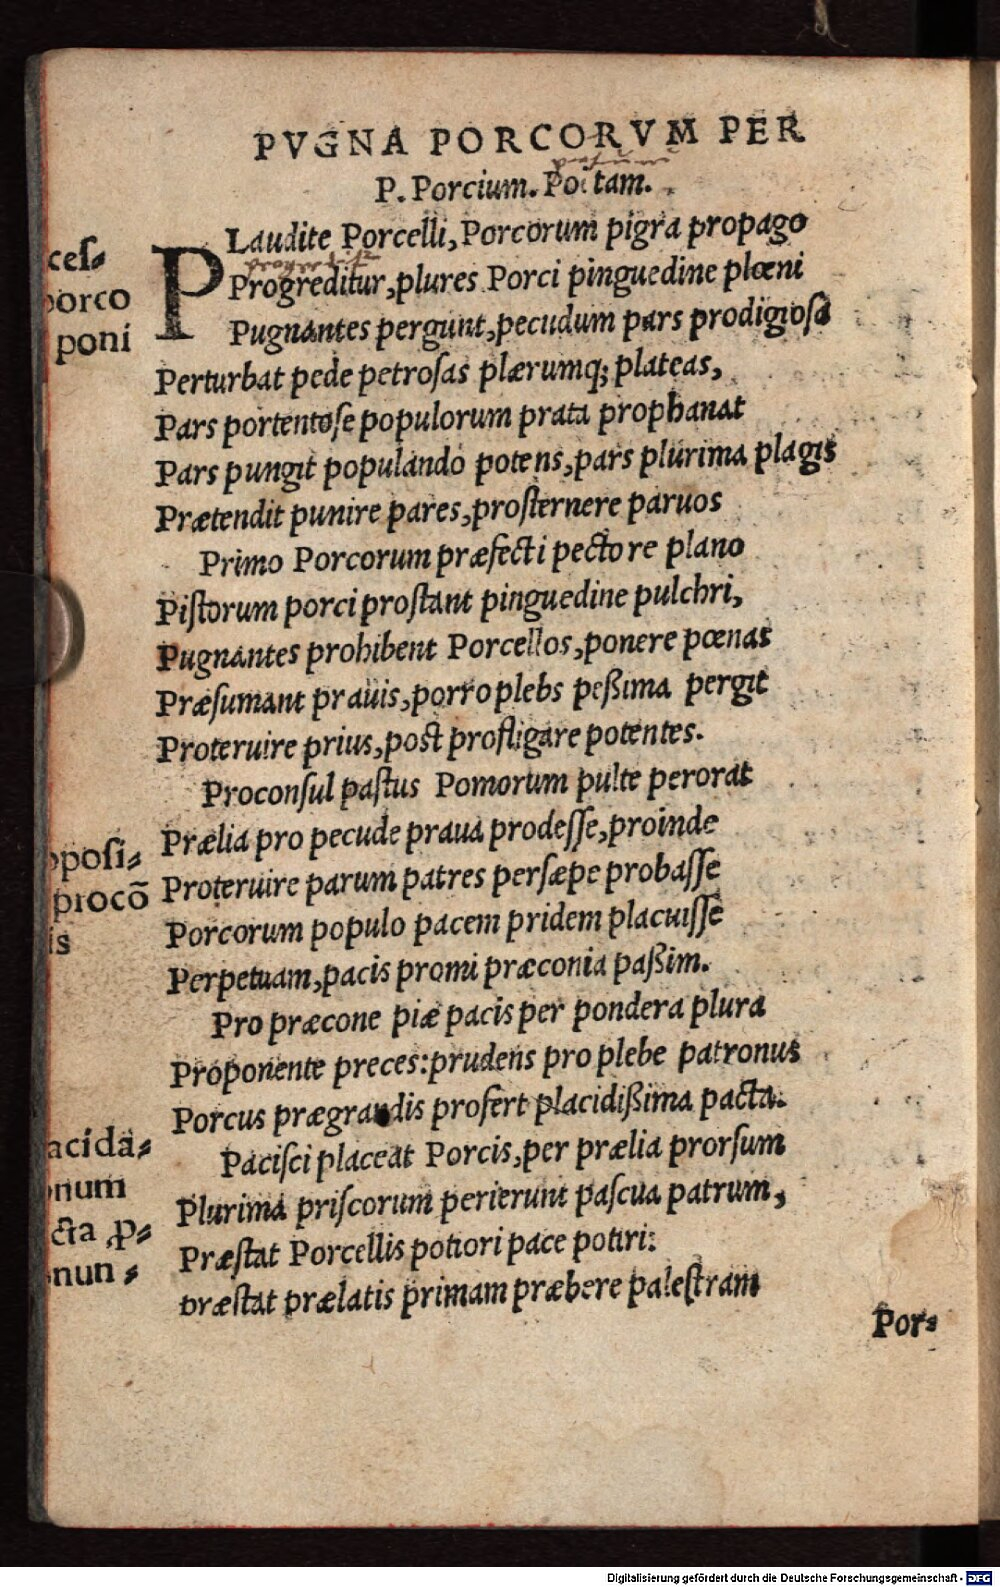 PVGNA PORCORVM PER
P. Porcium. Poetam.
PLaudite Porcelli, Porcorum pigra propago
Progreditur, plures Porci pinguedine plœni
Pugnantes pergunt, pecudum pars prodigiosa
Perturbat pede petrosas plærumq; plateas,
Pars portentose populorum prata prophanat
Pars pungit populando potens, pars plurima plagis
Prætendit punire pares, prosternere paruos
Primo Porcorum præfecti pectore plano
Pistorum porci prostant pinguedine pulchri,
Pugnantes prohibent Porcellos, ponere pœnas
Præsumant prauis, porro plebs peßima pergit
Proteruire prius, post profligare potentes.
Proconsul pastus Pomorum pulte perorat
Prælia pro pecude praua prodesse, proinde
Proteruire parum patres persæpe probasse
Porcorum populo pacem pridem placuisse
Perpetuam, pacis promi præconia paßim.
Pro præcone piæ pacis per pondera plura
Proponente preces: prudens pro plebe patronus
Porcus prægrandis profert placidißima pacta.
Pacisci placeat Porcis, per prælia prorsum
Plurima priscorum perierunt pascua patrum,
Præstat Porcellis potiori pace potiri:
præstat prælatis primam præbere palestram
Por-
ces-
porco
poni
oposi-
procō
is
acida-
onum
cta p-
nun-
Digitalisierung gefördert durch die Deutsche Forschungsgemeinschaft - DFG